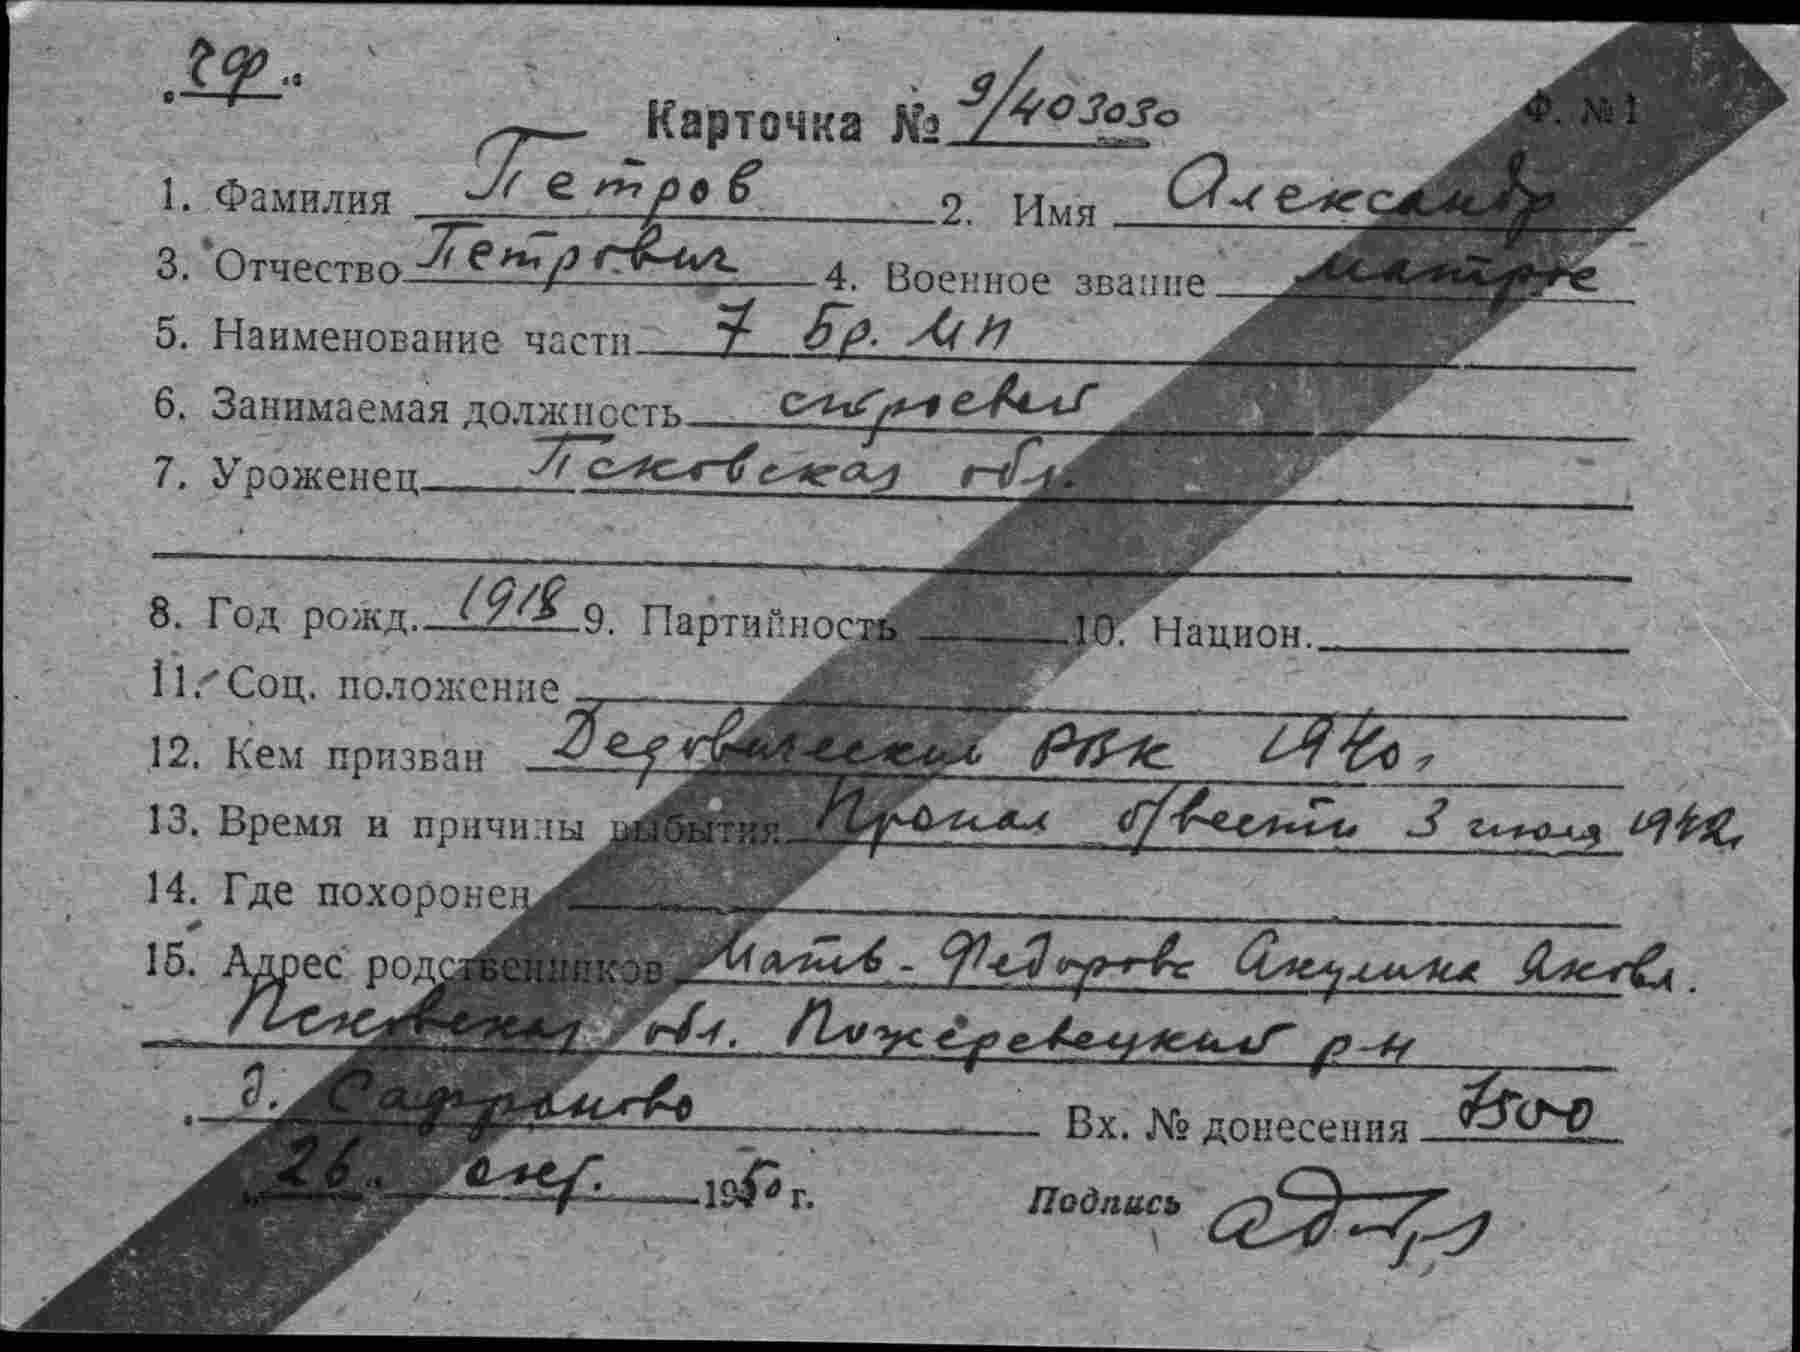 „ЧФ"
Карточка № 9/403030
Ф. №1
1. Фамилия Петров 2. Имя Александр
3. Отчество Петрович 4. Военное звание матрос
5. Наименование части 7 Бр. МП
6. Занимаемая должность строевой
7. Уроженец Псковская обл.
8. Год рожд. 1918 9. Партийность 10. Национ.
11. Соц. положение
12. Кем призван Дедовический РВК 1940г
13. Время и причины выбытия Пропал б/вести 3 июля 1942г
14. Где похоронен
15. Адрес родственников Мать - Федорова Акулина Яковл.
Псковская обл. Пожеревецкий р-н
д. Сафроново Вх. № донесения 7500
„26" окт. 1950 г. Подпись